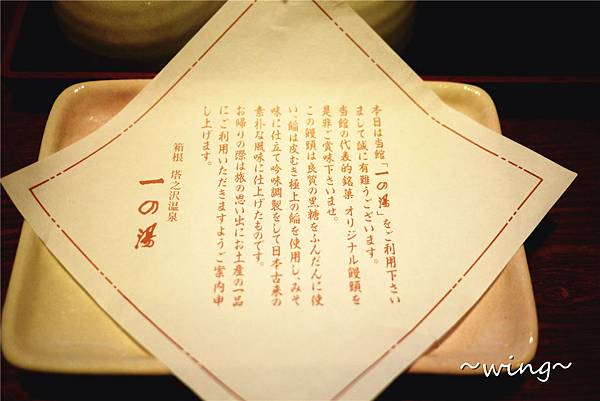 本日は当館「一の湯」をご利用下さい
まして誠に有難うございます。
当館の代表的銘菓 オリジナル饅頭を
是非ご賞味下さいませ。
この饅頭は良質の黒糖をふんだんに使
い、餡は皮むき極上の餡を使用し、みそ
味に仕立て吟味調製をして日本古来の
素朴な風味に仕上げたものです。
お帰りの際は旅の思い出にお土産の一品
にご利用いただきますようご案内申
し上げます。
箱根 塔之沢温泉
一の湯
~wing~